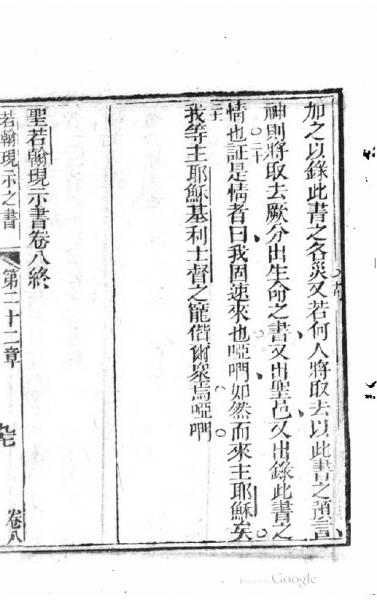 加之以錄此書之各災又若何人將取去以此書之預言
神則將取去厥分出生命之書又出聖邑又出錄此書之
情也証是情者曰我固速來也啞𠵽如然而來主耶穌矣
我等主耶穌基利士督之寵偕爾眾焉啞𠵽
聖若翰現示書卷八終
若翰現示之書 第二十二章 卷八
Google